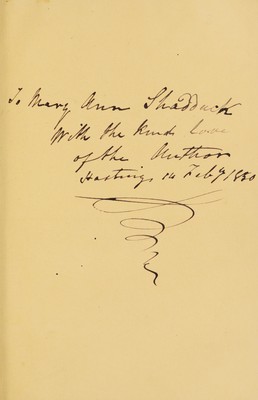 To Mary Ann Shadduck
With the kind Love
of the Author
Hastings 14 Feby 1880